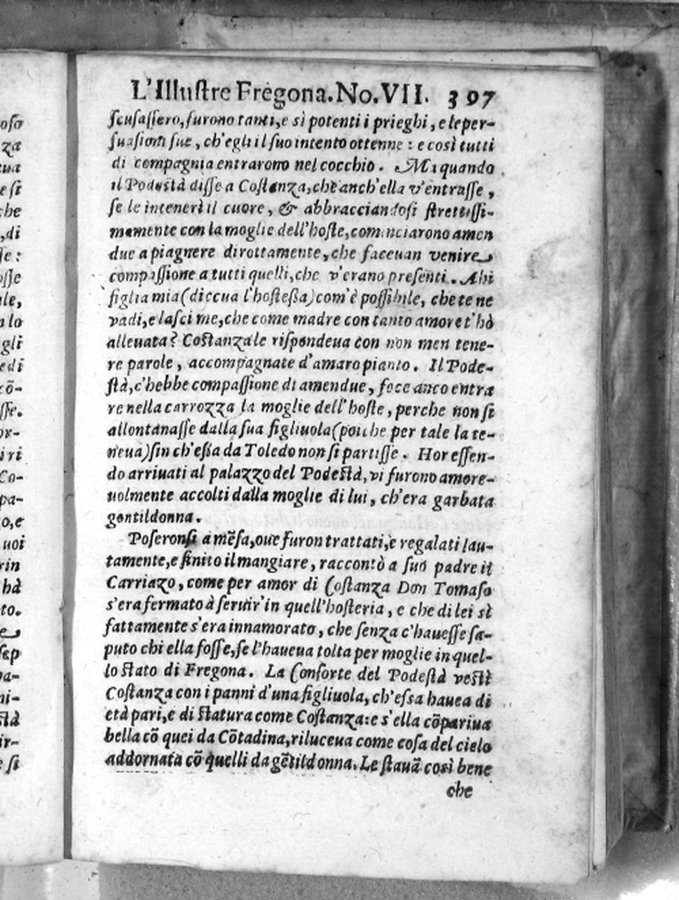 L'Illustre Fregona. No. VII. 397
scusassero, furono tanti, e sì potenti i prieghi, e le per-
suasioni sue, ch'egli il suo intento ottenne: e così tutti
di compagnia entrarono nel cocchio. Ma quando
il Podestà disse a Costanza, che anch'ella v'entrasse,
se le intenerì il cuore, & abbracciandosi strettissi-
mamente con la moglie dell'hoste, cominciarono amen
due a piagnere dirottamente, che faceuan venire
compassione a tutti quelli, che v'erano presenti. Ahi
figlia mia (diceua l'hostessa) com'è possibile, che te ne
vadi, e lasci me, che come madre con tanto amore t'hò
alleuata? Costanza le rispondeua con non men tene-
re parole, accompagnate d'amaro pianto. Il Pode-
stà, c'hebbe compassione di amendue, fece anco entra
re nella carrozza la moglie dell'hoste, perche non si
allontanasse dalla sua figliuola (poiche per tale la te-
neua) sin ch'essa da Toledo non si partisse. Hor essen-
do arriuati al palazzo del Podestà, vi furono amore-
uolmente accolti dalla moglie di lui, ch'era garbata
gentildonna.
Poseronsi a mẽsa, oue furon trattati, e regalati lau-
tamente, e finito il mangiare, raccontò a suo padre il
Carriazo, come per amor di Costanza Don Tomaso
s'era fermato à seruir' in quell'hosteria, e che di lei sì
fattamente s'era innamorato, che senza c'hauesse sa-
puto chi ella fosse, se l'haueua tolta per moglie in quel-
lo stato di Fregona. La Consorte del Podestà vestì
Costanza con i panni d'una figliuola, ch'essa hauea di
età pari, e di statura come Costanza: e s'ella cõpariua
bella cõ quei da Cõtadina, riluceua come cosa del cielo
addornata cõ quelli da gẽtildonna. Le stauã così bene
che